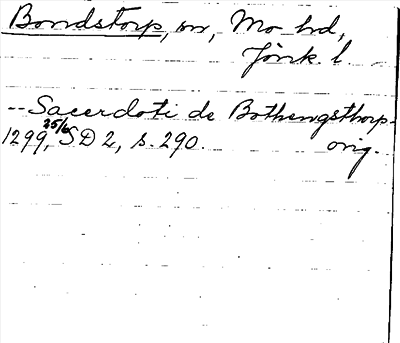 Bondstorp, sn, Mo hd,
Jönk. l
-- Sacerdoti de Bothengsthorp.
1299, 25/6 SD 2, s. 290. orig.